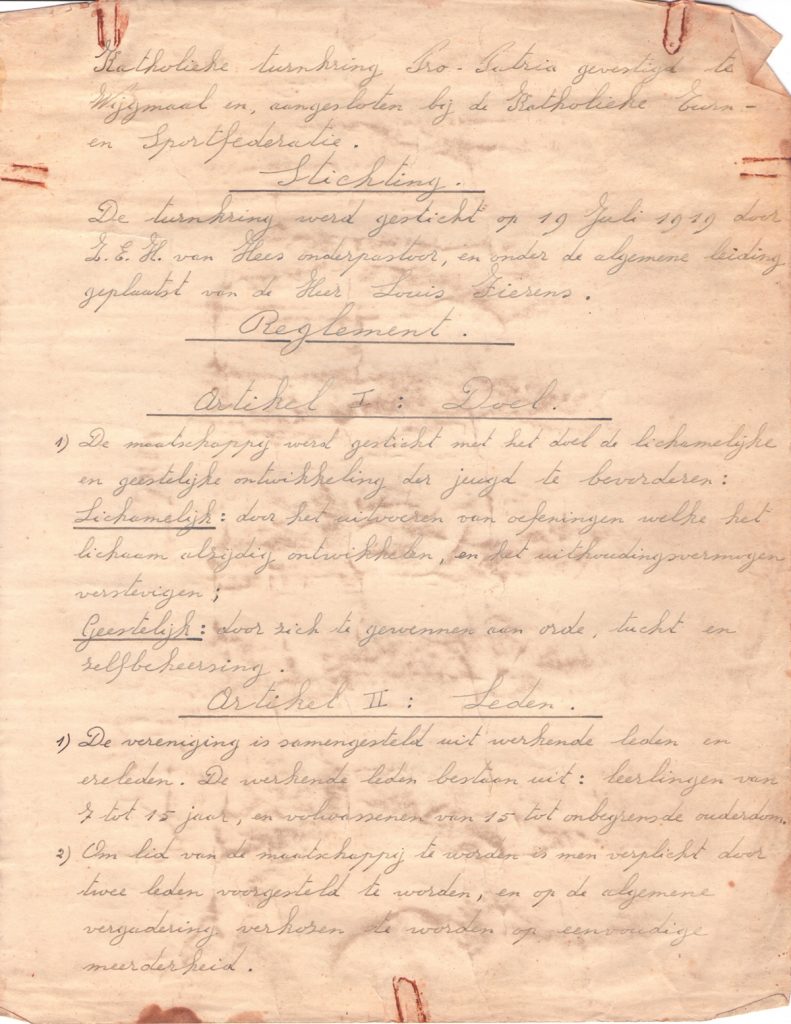 Katholieke turnkring Pro-Patria gevestigd te
Wijgmaal en, aangesloten bij de Katholieke Turn-
en Sportfederatie.
Stichting.
De turnkring werd gesticht op 19 Juli 1919 door
Z.E.H. van Hees onderpastoor, en onder de algemene leiding
geplaatst van de Heer Louis Fierens.
Reglement.
Artikel I : Doel.
1) De maatschappij werd gesticht met het doel de lichamelijke
en geestelijke ontwikkeling der jeugd te bevorderen:
Lichamelijk: door het uitvoeren van oefeningen welke het
lichaam alzijdig ontwikkelen, en het uithoudingsvermogen
verstevigen;
Geestelijk: door zich te gewennen aan orde, tucht en
zelfbeheersing.
Artikel II : Leden.
1) De vereniging is samengesteld uit werkende leden en
ereleden. De werkende leden bestaan uit: leerlingen van
7 tot 15 jaar, en volwassenen van 15 tot onbegrensde ouderdom.
2) Om lid van de maatschappij te worden is men verplicht door
twee leden voorgesteld te worden, en op de algemene
vergadering verkozen te worden op eenvoudige
meerderheid.